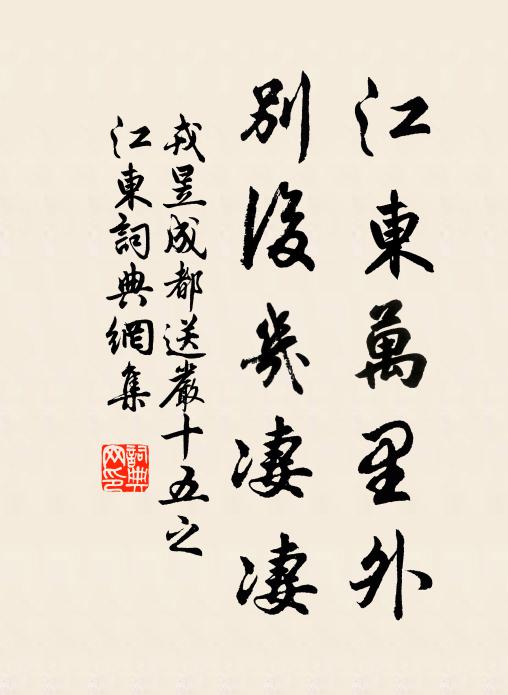 江東萬里外
別後幾淒淒
戎昱成都送嚴十五之
江東詞典網集
詞典网印